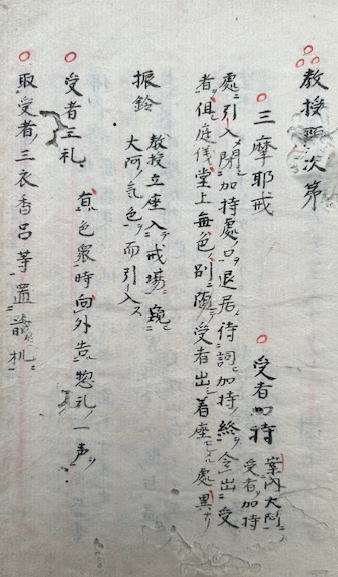 教授 次第
三摩耶戒 受者加持 案内大阿
受者加持
處引入閉加持處口退居待詞加持終令出受
者但庭儀堂上無色別蘭受者出着座 處異ナリ
振鈴 教授立座入戒場窺
大阿氣色而引入ス
受者三礼 色衆時向外告惣礼一声
取受者三衣香呂等置 机